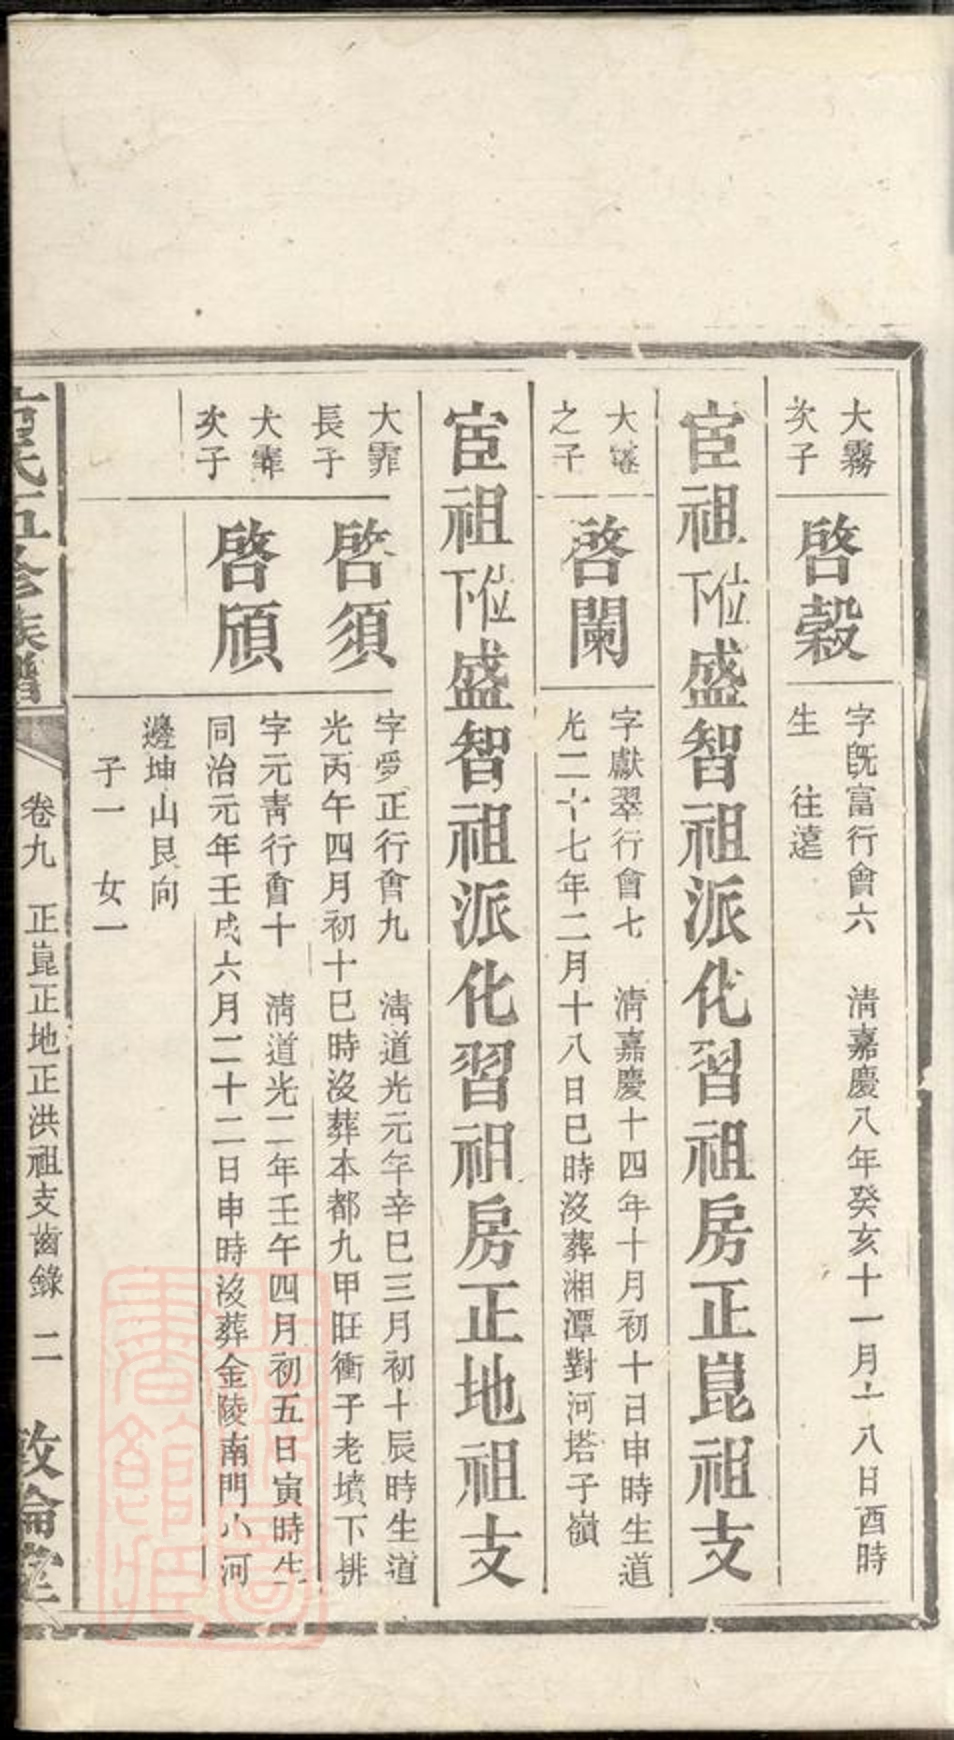 大霧
次子
啓穀
字旣富行會六　淸嘉慶八年癸亥十一月十八日酉時
生　往遠
宦祖位下盛智祖派化習祖房正崑祖支
大
之子
啓闌
字獻翠行會七　淸嘉慶十四年十月初十日申時生道
光二十七年二月十八日巳時沒葬湘潭對河塔子嶺
宦祖位下盛智祖派化習祖房正地祖支
大霏
長子
啓須
字夢正行會九　淸道光元年辛巳三月初十辰時生道
光丙午四月初十巳時沒葬本都九甲旺衝子老墳下排
大霏
次子
啓頎
字元靑行會十　淸道光二年壬午四月初五日寅時生
同治元年壬戌六月二十二日申時沒葬金陵南門小河
邊坤山艮向
子一　女一
氏五修族譜
卷九　正崑正地正洪祖支齒錄　二
敦倫堂